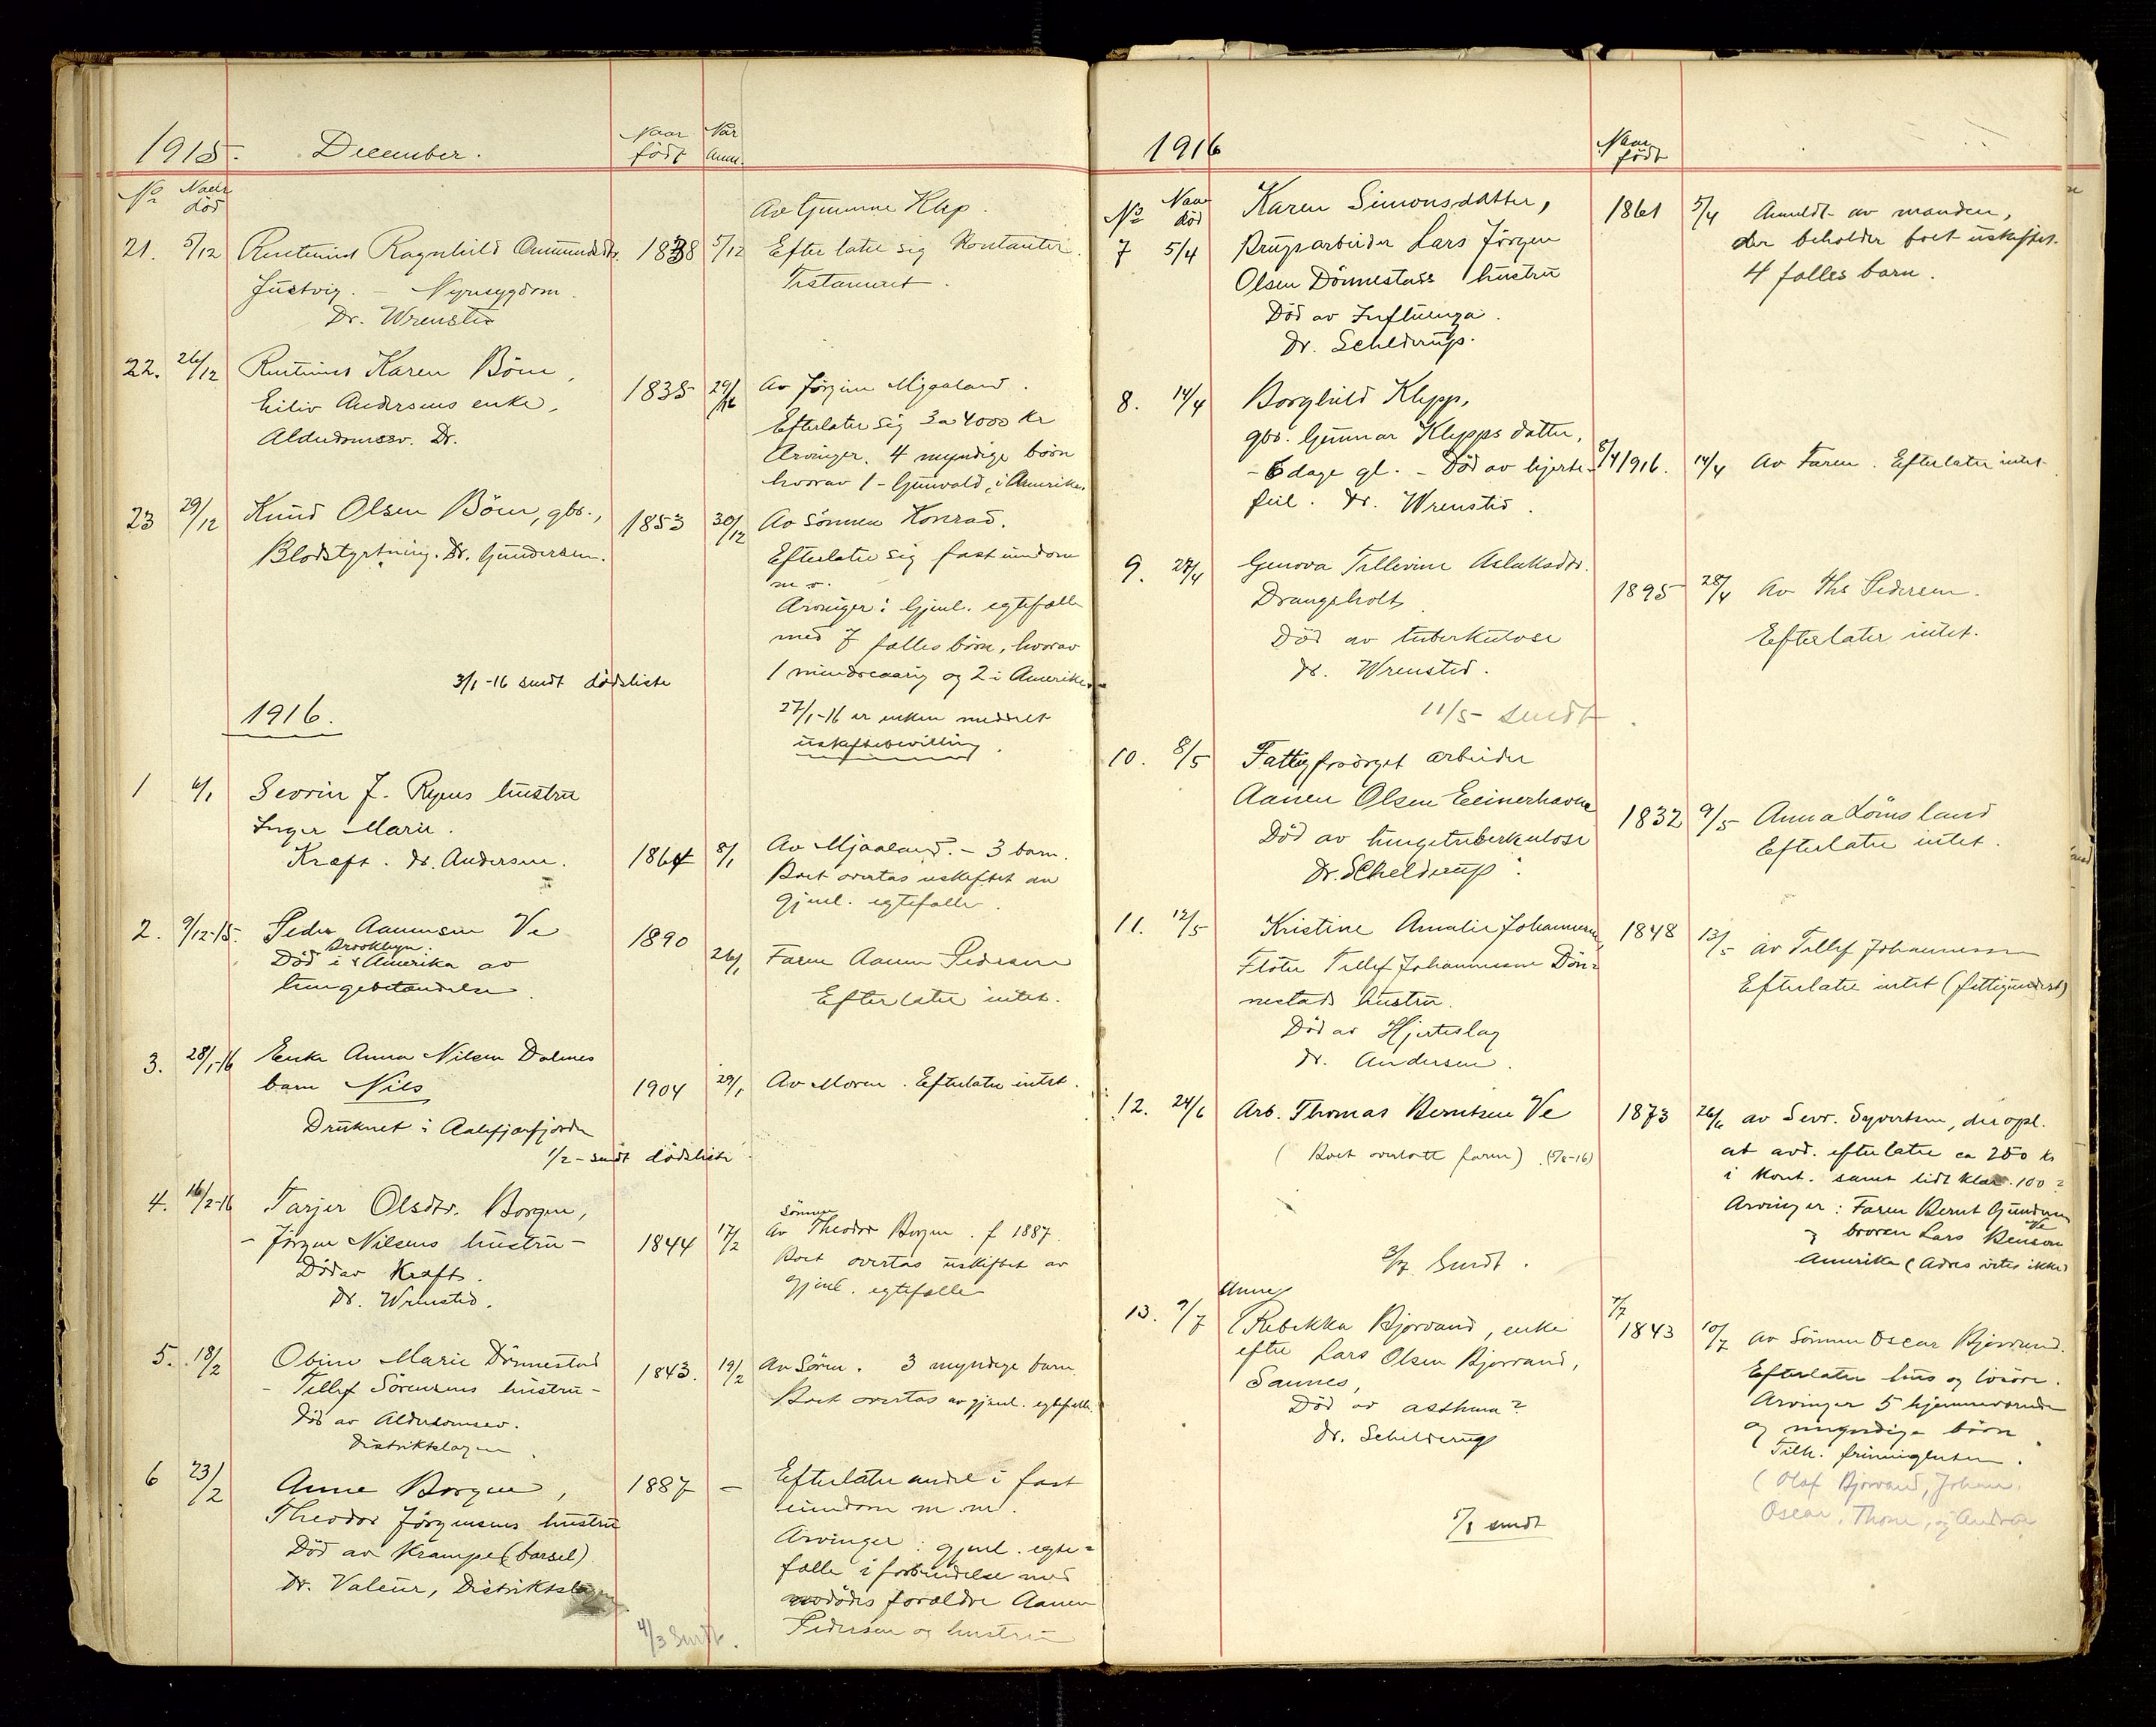 1915. December. Naar født Når Anm.
No Naar død
Av Gunnar Klep.
21. 5/12 Rentenist Ragnhild Aanundsdtr. 1838 5/12 Efterlater sig Kontanter.
Justvig. – Nyresygdom. Testament.
Dr. Wrensted
22. 26/12 Rentenist Karen Böen, 1835 29/1 16 Av Jörgine Mjaaland.
Eiliv Andersens enke, Efterlater sig 3 a 4000 kr
Alderdomssv. Dr. Arvinger. 4 myndige börn
hvorav 1 – Gunvald, i Amerika.
23 29/12 Knud Olsen Böen, gbr., 1853 30/12 Av Sönnen Konrad.
Blodstyrtning. Dr. Gundersen. Efterlater sig fast eiendom
m. v.
Arvinger: Gjenl. egtefælle
med 7 fælles börn, hvorav
3/1-16 sendt dödsliste 1 mindreaarig og 2 i Amerika.
1916.
27/1-16 er enken meddelt
uskiftebevilling.
1 6/1 Sevrin J. Ryens hustru
Inger Marie.
Kræft. dr. Andersen. 1864 8/1 Av Mjaaland. – 3 barn.
Boet overtas uskiftet av
gjenl. egtefælle.
2. 9/12-15. Peder Aanensen Ve 1890
Brooklyn.
Död i Amerika av 26/1 Faren Aanen Pedersen
lungebetændelse. Efterlater intet.
3. 28/1-16 Enke Anna Nilsen Dalenes
barn Nils 1904 29/1 Av Moren. Efterlater intet.
Druknet i Aalefjærfjorden
1/2 – sendt dödsliste
4. 16/2-16 Tarjer Olsdtr. Borgen,
– Jörgen Nilsens hustru – 1844 17/2 Av sönnen Theodor Borgen. f 1887
Död av Kræft. Boet overtas uskiftet av
Dr. Wrensted. gjenl. egtefælle
5. 18/2 Obine Marie Dönnestad 1843. 19/2 Av Sören. 3 myndige barn.
– Tellef Sörensens hustru – Boet overtas av gjenl. egtefælle.
Död av Alderdomssv.
Distriktslægen.
6 23/2 Anne Borgen, 1887 – Efterlater andel i fast
Theodor Jörgensens hustru eiendom m. m.
Död av Krampe (barsel). Arvinger: gjenl. egte-
Dr. Valeur, Distriktslægen fælle i forbindelse med
avdödes forældre Aanen
4/3 Sendt. Pedersen og hustru
1916 Naar født
No Naar død Karen Simonsdatter, 1861 5/4 Anmeldt av manden,
7 5/4 Brugsarbeider Lars Jörgen der beholder boet uskiftet.
Olsen Dönnestads hustru 4 fælles barn.
Död av Influenza.
Dr. Schelderup.
8. 14/4 Borghild Klepp,
gbr. Gunnar Klepps datter,
– 6 dage gl. – Död av hjerte- 8/4 1916. 14/4 Av Faren. Efterlater intet
feil. Dr. Wrensted.
9. 27/4 Genova Tellevine Aslaksdtr.
Drangsholt 1895 28/4 Av Ths Pedersen.
Död av tuberkulose Efterlater intet.
dr. Wrensted.
11/5 – sendt.
10. 8/5 Fattigforsörget arbeider
Aanen Olsen 1832 9/5 Anna Lömsland
Död av lungetuberkulose Efterlater intet.
Dr. Schelderup.
11. 12/5 Kristine Amalie Johannesen 1848 13/5 av Tellef Johannessen
Fløter Tellef Johannessen Dön- Efterlater intet (fattigunderst)
nestads hustru.
Död av Hjerteslag
dr. Andersen.
12. 24/6 Arb. Thomas Berntsen Ve 1873 26/6 av Sevr. Syvertsen, der opl.
(Boet overlatt faren) (5/8-16) at avd. efterlater ca 250 kr
i kont. samt lidt klær. 100?
Arvinger: Faren Bernt Gundersen Ve
og broren Lars Benson
3/7 Sendt. Amerika (Adres vites ikke)
13. 7/7 Anne Rebekka Bjorvand, enke 7/7 1843 10/7 Av Sönnen Oscar Bjorvand.
efter Lars Olsen Bjorvand, Efterlater hus og lösöre.
Saunes, Arvinger 5 hjemmeværende
Död av asthma? og myndige börn.
Dr. Schelderup Tilh. frimenigheten.
(Olaf Bjorvand, Johan,
Oscar, Thone, og Andrea
1/8 sendt